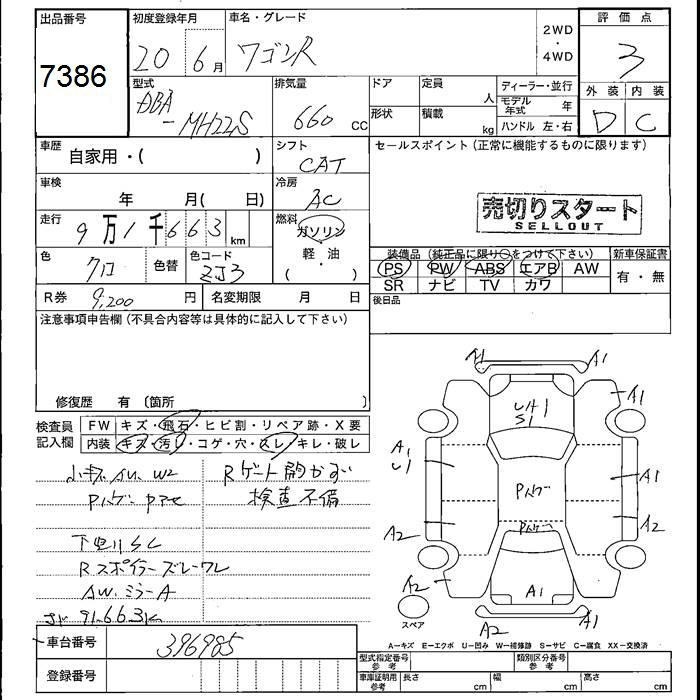 出品番号 初度登録年月 車名・グレード 2WD・4WD 評価点
7386 20 6月 ワゴンR 3
型式 排気量 ドア 定員 人 ディーラー・並行 外装 内装
DBA-MH22S 660 CC 形状 積載 kg モデル年式 年 D C
ハンドル 左・右
車歴 自家用・( ) シフト CAT セールスポイント(正常に機能するものに限ります)
車検 年 月( 日) 冷房 AC
売切りスタート
SELLOUT
走行 9万1千663km 燃料 ガソリン
軽・油
( )
色 クロ 色替 色コード ZJ3
装備品(純正品に限り○をつけて下さい) 新車保証書
PS PW ABS エアB AW 有・無
SR ナビ TV カワ
R券 9,200円 名変期限 月 日 後日品
注意事項申告欄(不具合内容等は具体的に記入して下さい)
修復歴 有 (箇所 )
検査員記入欄 FW キズ・飛石・ヒビ割・リペア跡・X要
内装 キズ・汚・コゲ・穴・スレ・キレ・破レ
小キズ W2 Rゲート開かず
検査不備
Rスポイラーズレ・ワレ
ミラーA
91,663K
A1 A1
A1
UA1
S1
A1
U1 A1
A2 A2
A2 A1
A2
スペア
A-キズ E-エクボ U-凹み W-補修跡 S-サビ C-腐食 XX-交換済
車台番号 396985
登録番号
型式指定番号参考 類別区分番号参考
車庫証明用参考 長さ cm 幅 cm 高さ cm